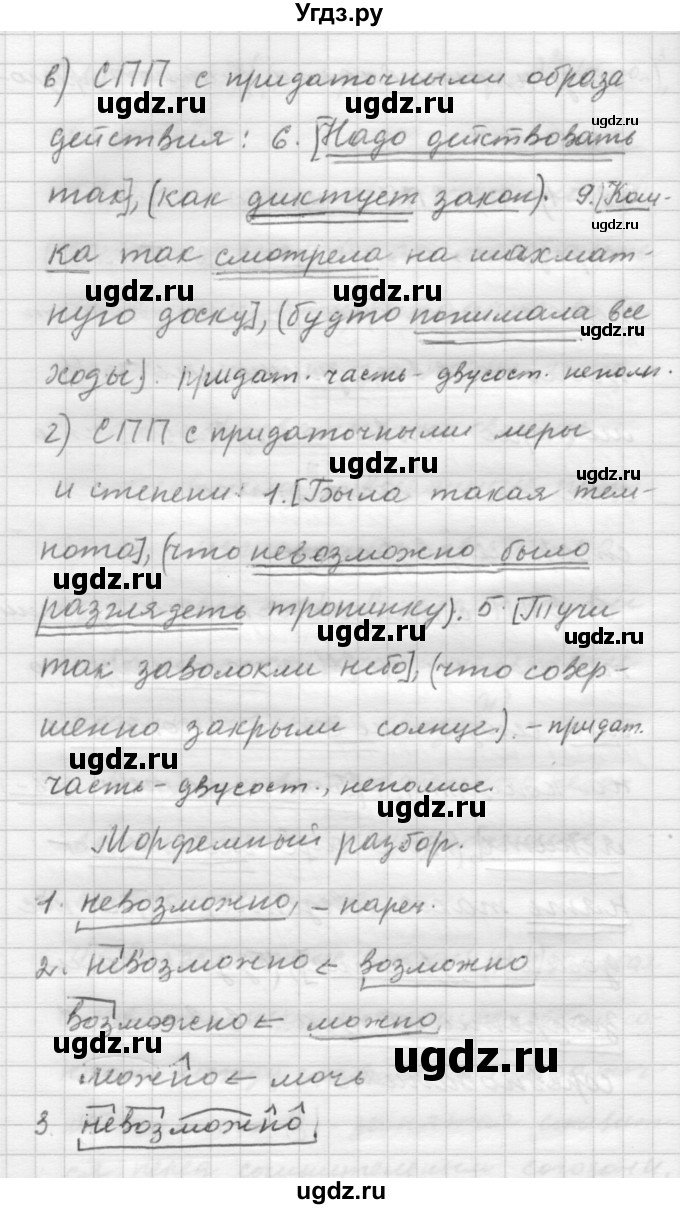 Угдз.ру
в) СПП с придаточными образа
ugdz.ru ugdz.ru
действия: 6. [Надо действовать
ugdz.ru
так], (как диктует закон). 9. [Кош-
ugdz.ru
ка так смотрела на шахмат-
ugdz.ru ugdz.ru
ную доску], (будто понимала все
ugdz.ru
ходы). придат. часть - двусост. неполн.
г) СПП с придаточными меры
ugdz.ru ugdz.ru
и степени: 1. [Была такая тем-
нота], (что невозможно было
ugdz.ru
разглядеть тропинку). 5. [Тучи
ugdz.ru ugdz.ru
так заволокли небо], (что совер-
шенно закрыли солнце). - придат.
ugdz.ru
часть - двусост., неполное.
ugdz.ru
Морфемный разбор.
1. невозможно, - нареч.
2. невозможно ← возможно
возможно ← можно
ugdz.ru ugdz.ru
можно ← мочь
3. невозможно
ugdz.ru